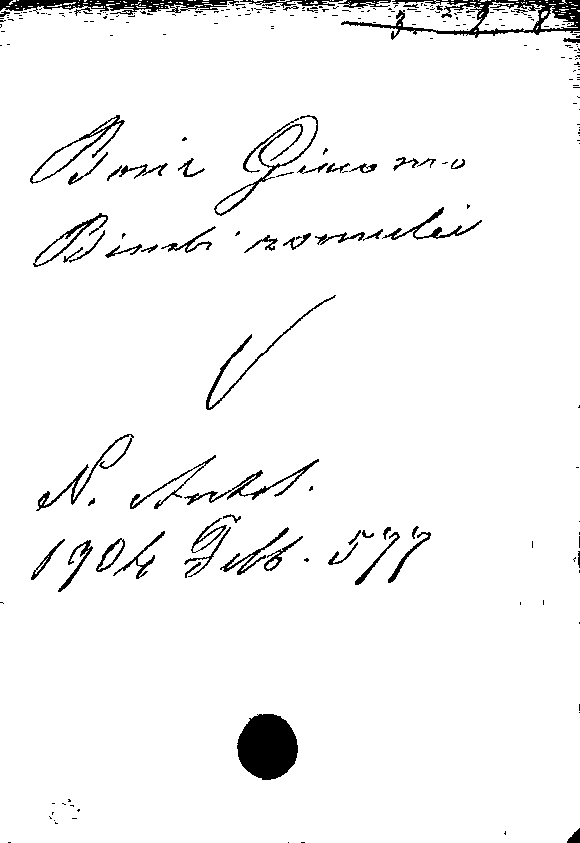 3 2 8
Boni Giacomo
Bimbi romulei
V
N. Antol.
1904 Febb. 577